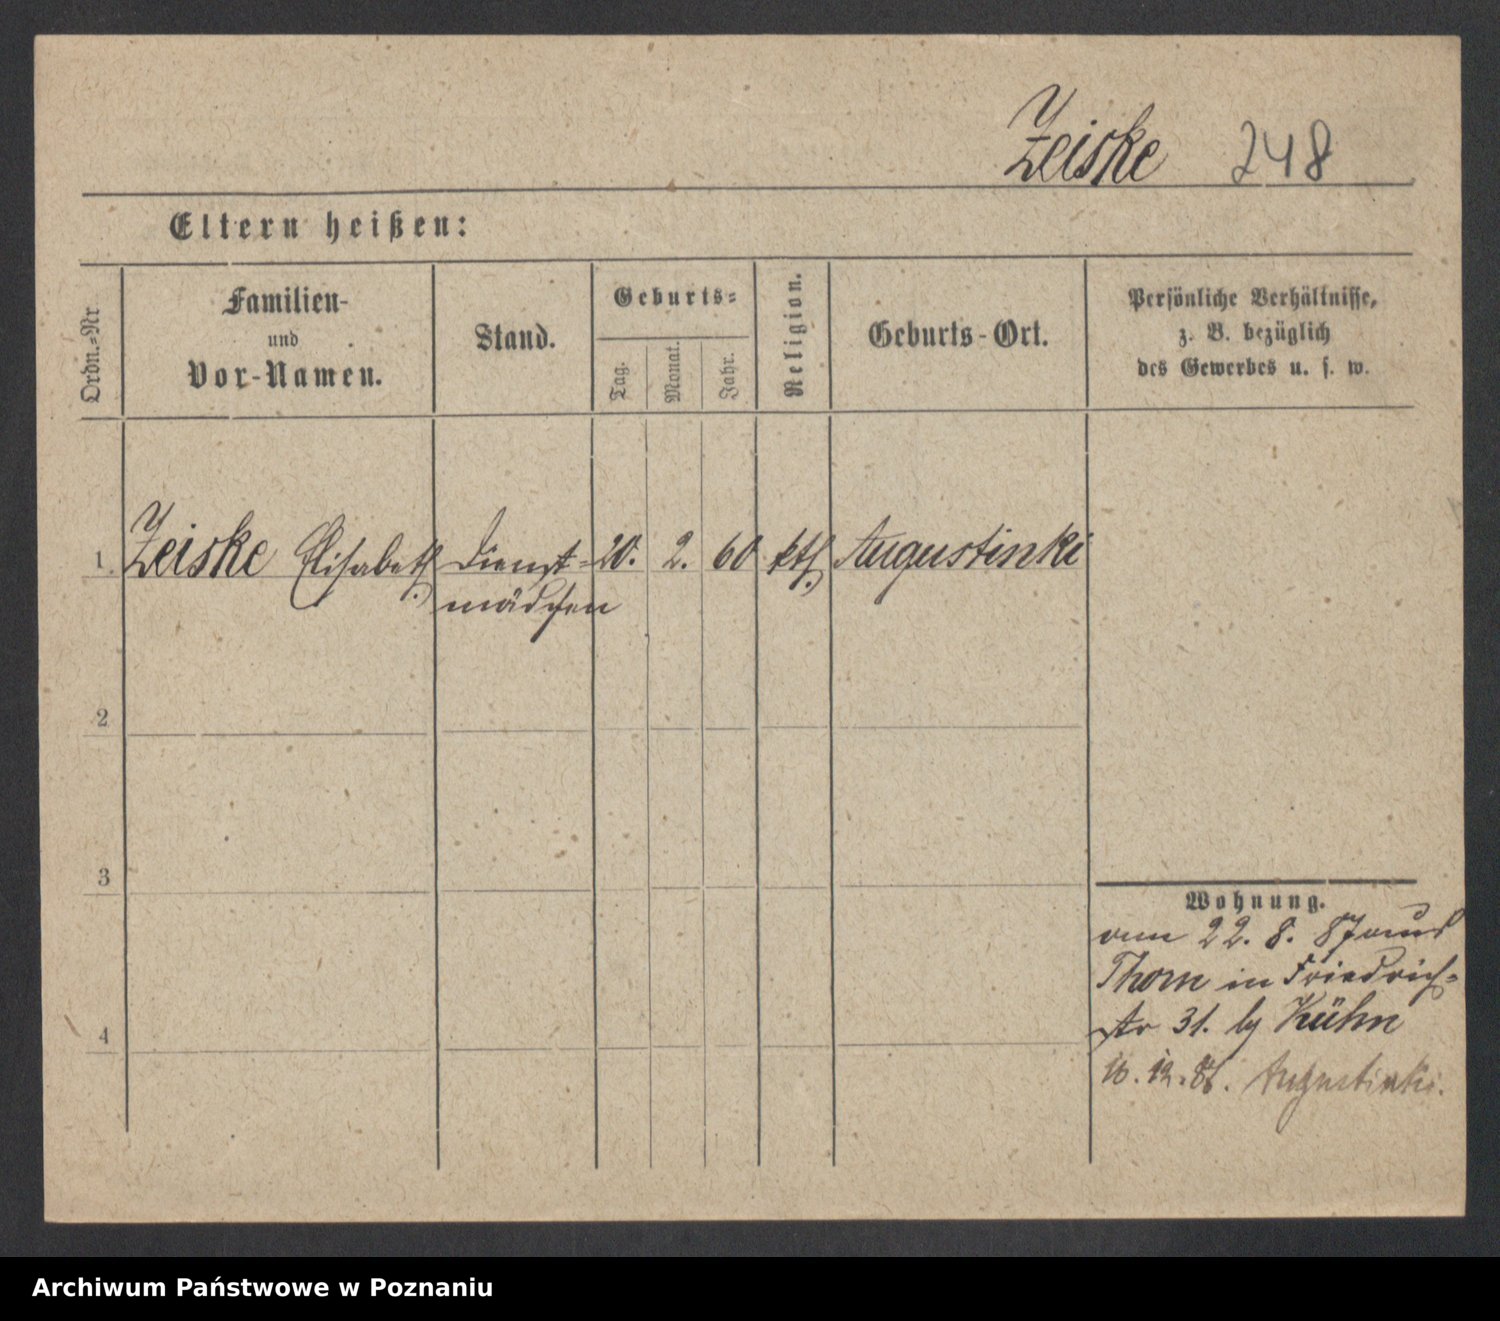 Zeiske 248
Eltern heißen:
Ordn.=Nr
Familien-
und
Vor-Namen.
Stand.
Geburts=
Tag.
Monat.
Jahr.
Religion.
Geburts-Ort.
Persönliche Verhältnisse,
z. B. bezüglich
des Gewerbes u. s. w.
1. Zeiske Elisabeth Dienst= 20. 2. 60 kth. Augustinki
mädchen
2
3
4
Wohnung.
22. 8. 87
Thorn in Friedrich=
str 31. by Kühn
12. Augustinki.
Archiwum Państwowe w Poznaniu